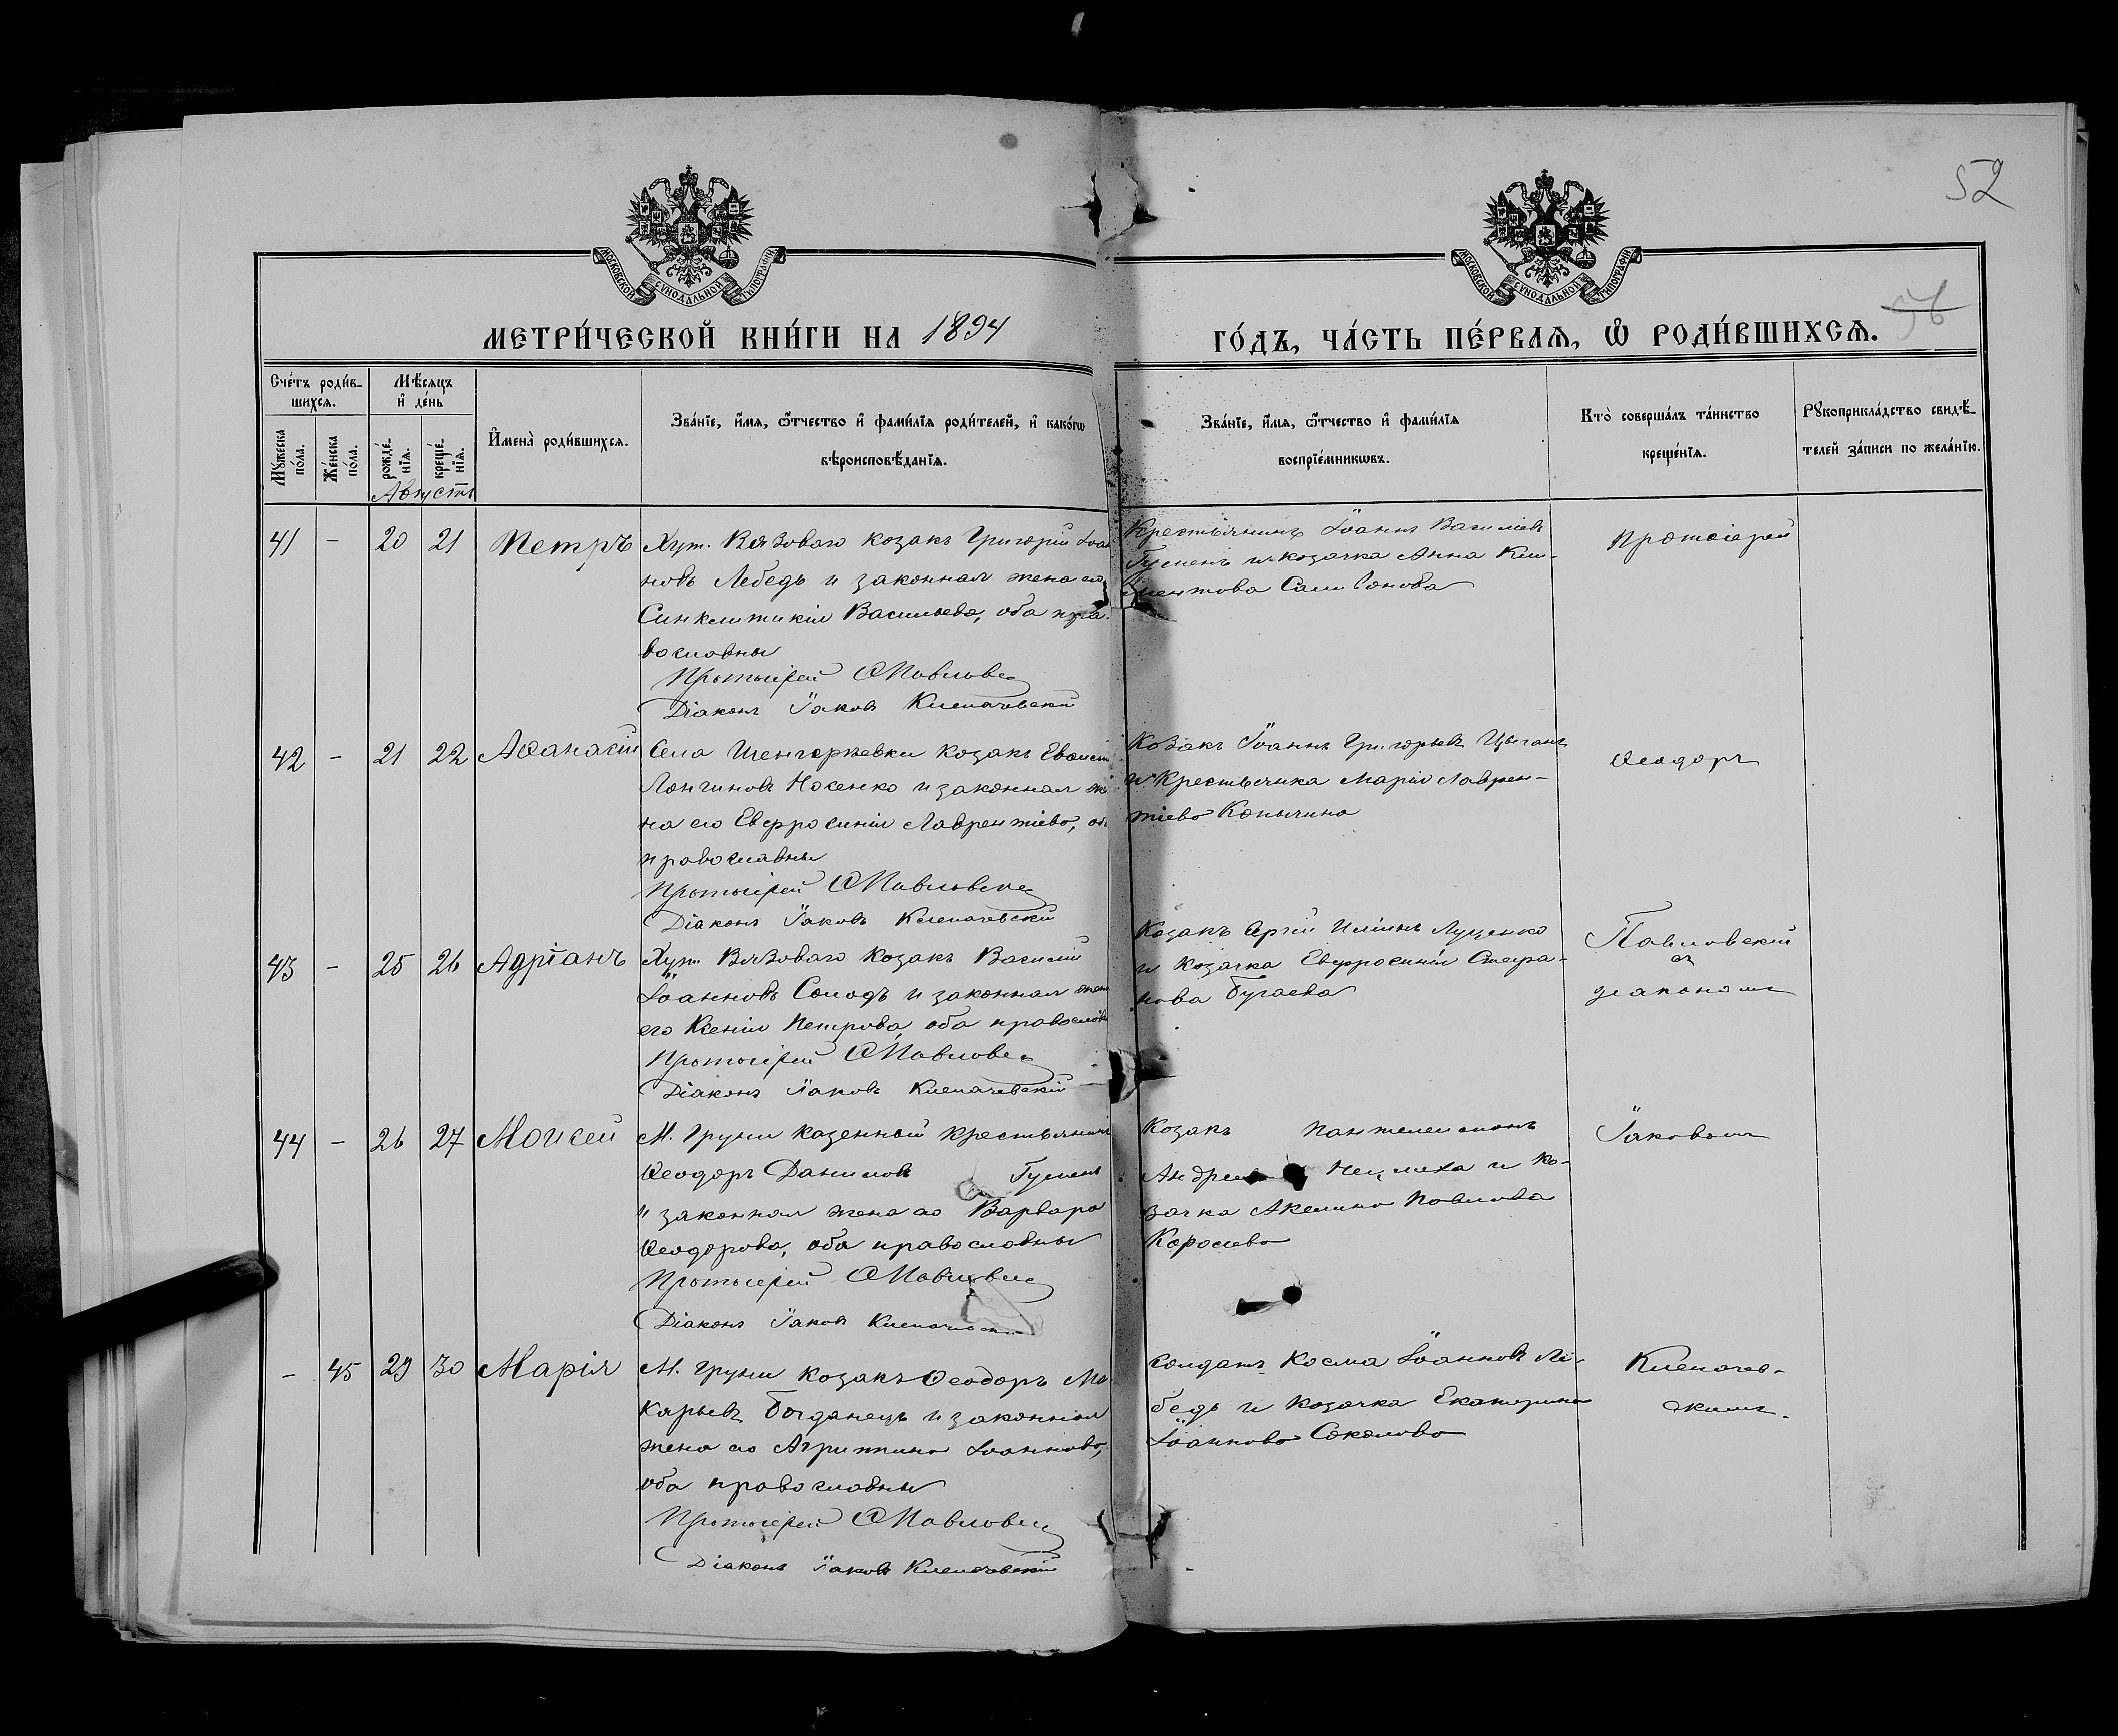 52
56
МОСКОВСКОЙ СѴНОДАЛЬНОЙ ТИПОГРАФІИ
МОСКОВСКОЙ СѴНОДАЛЬНОЙ ТИПОГРАФІИ
МЕТРИ́ЧЕСКОЙ КНИ́ГИ НА 1894
ГО́ДЪ, ЧА́СТЬ ПЕ́РВАЯ, Ѡ҆ РОДИ́ВШИХСЯ.
Сче́тъ роди́в-
шихся.
Мꙋ́жеска
по́ла.
Же́нска
по́ла.
Мѣ́сяцъ
и҆ де́нь
рожде́-
нїя.
креще́-
нїя.
Августъ
И҆мена̀ роди́вшихся.
Зва́нїе, и҆́мя, ѻ҆́тчество и҆ фами́лїя роди́телей, и҆ како́гѡ
вѣроисповѣ́данїя.
Зва́нїе, и҆́мя, ѻ҆́тчество и҆ фами́лїя
воспрїе́мникѡвъ.
Кто̀ соверша́лъ та́инство
креще́нїя.
Рꙋкоприкла́дство свидѣ́-
телей за́писи по жела́нїю.
41 - 20 21 Петръ
Хут. Вязоваго козакъ Григорій Іоан
новъ Лебедь и законная жена его
Синклитикія Васильева, оба пра-
вославны
Протоіерей Ѳ Павловск
Діаконъ Іаковъ Клепачевскій
Крестьянинъ Іоаннъ Василіевъ
Гуменъ и козачка Анна Кли-
ментова Самсонова
Протоіерей
42 - 21 22 Аѳанасій
Села Шенгарѣевки козакъ
Лонгиновъ Носенко и законная же
на его Евфросинія Лаврентіева, об
православны
Протоіерей Ѳ Павловск
Діаконъ Іаковъ Клепачевскій
Козакъ Іоаннъ Григорьевъ Цыганъ
и крестьянка Марія Лаврен-
тіева Конычина
Ѳеодоръ
43 - 25 26 Адріанъ
Хут. Вязоваго козакъ Василій
Іоанновъ Солодъ и законная жена
его Ксенія Петрова, оба православны
Протоіерей Ѳ Павловск
Діаконъ Іаковъ Клепачевскій
Козакъ Сергій Иліинъ Луценко
и козачка Евфросинія Стефа-
нова Бугаева
Павловскій
съ
діакономъ
44 - 26 27 Моисей
М. Груни казенный крестьянинъ
Ѳеодоръ Даниловъ Гуменъ
и законная жена его Варвара
Ѳеодорова, оба православны
Протоіерей Ѳ Павловск
Діаконъ Іаковъ Клепачевскій
Козакъ Пантелеимонъ
Андреевъ и ко-
зачка Акелина Павлова
Королева
Іаковомъ
- 45 29 30 Марія
М. Груни козакъ Ѳеодоръ Ма-
карьевъ Богданецъ и законная
жена его Агриппина Іоаннова,
оба православны
Протоіерей Ѳ Павловск
Діаконъ Іаковъ Клепачевскій
Солдатъ Косма Іоанновъ Ле-
бедь и козачка Екатерина
Іоаннова Соколова
Клепачев-
скимъ.